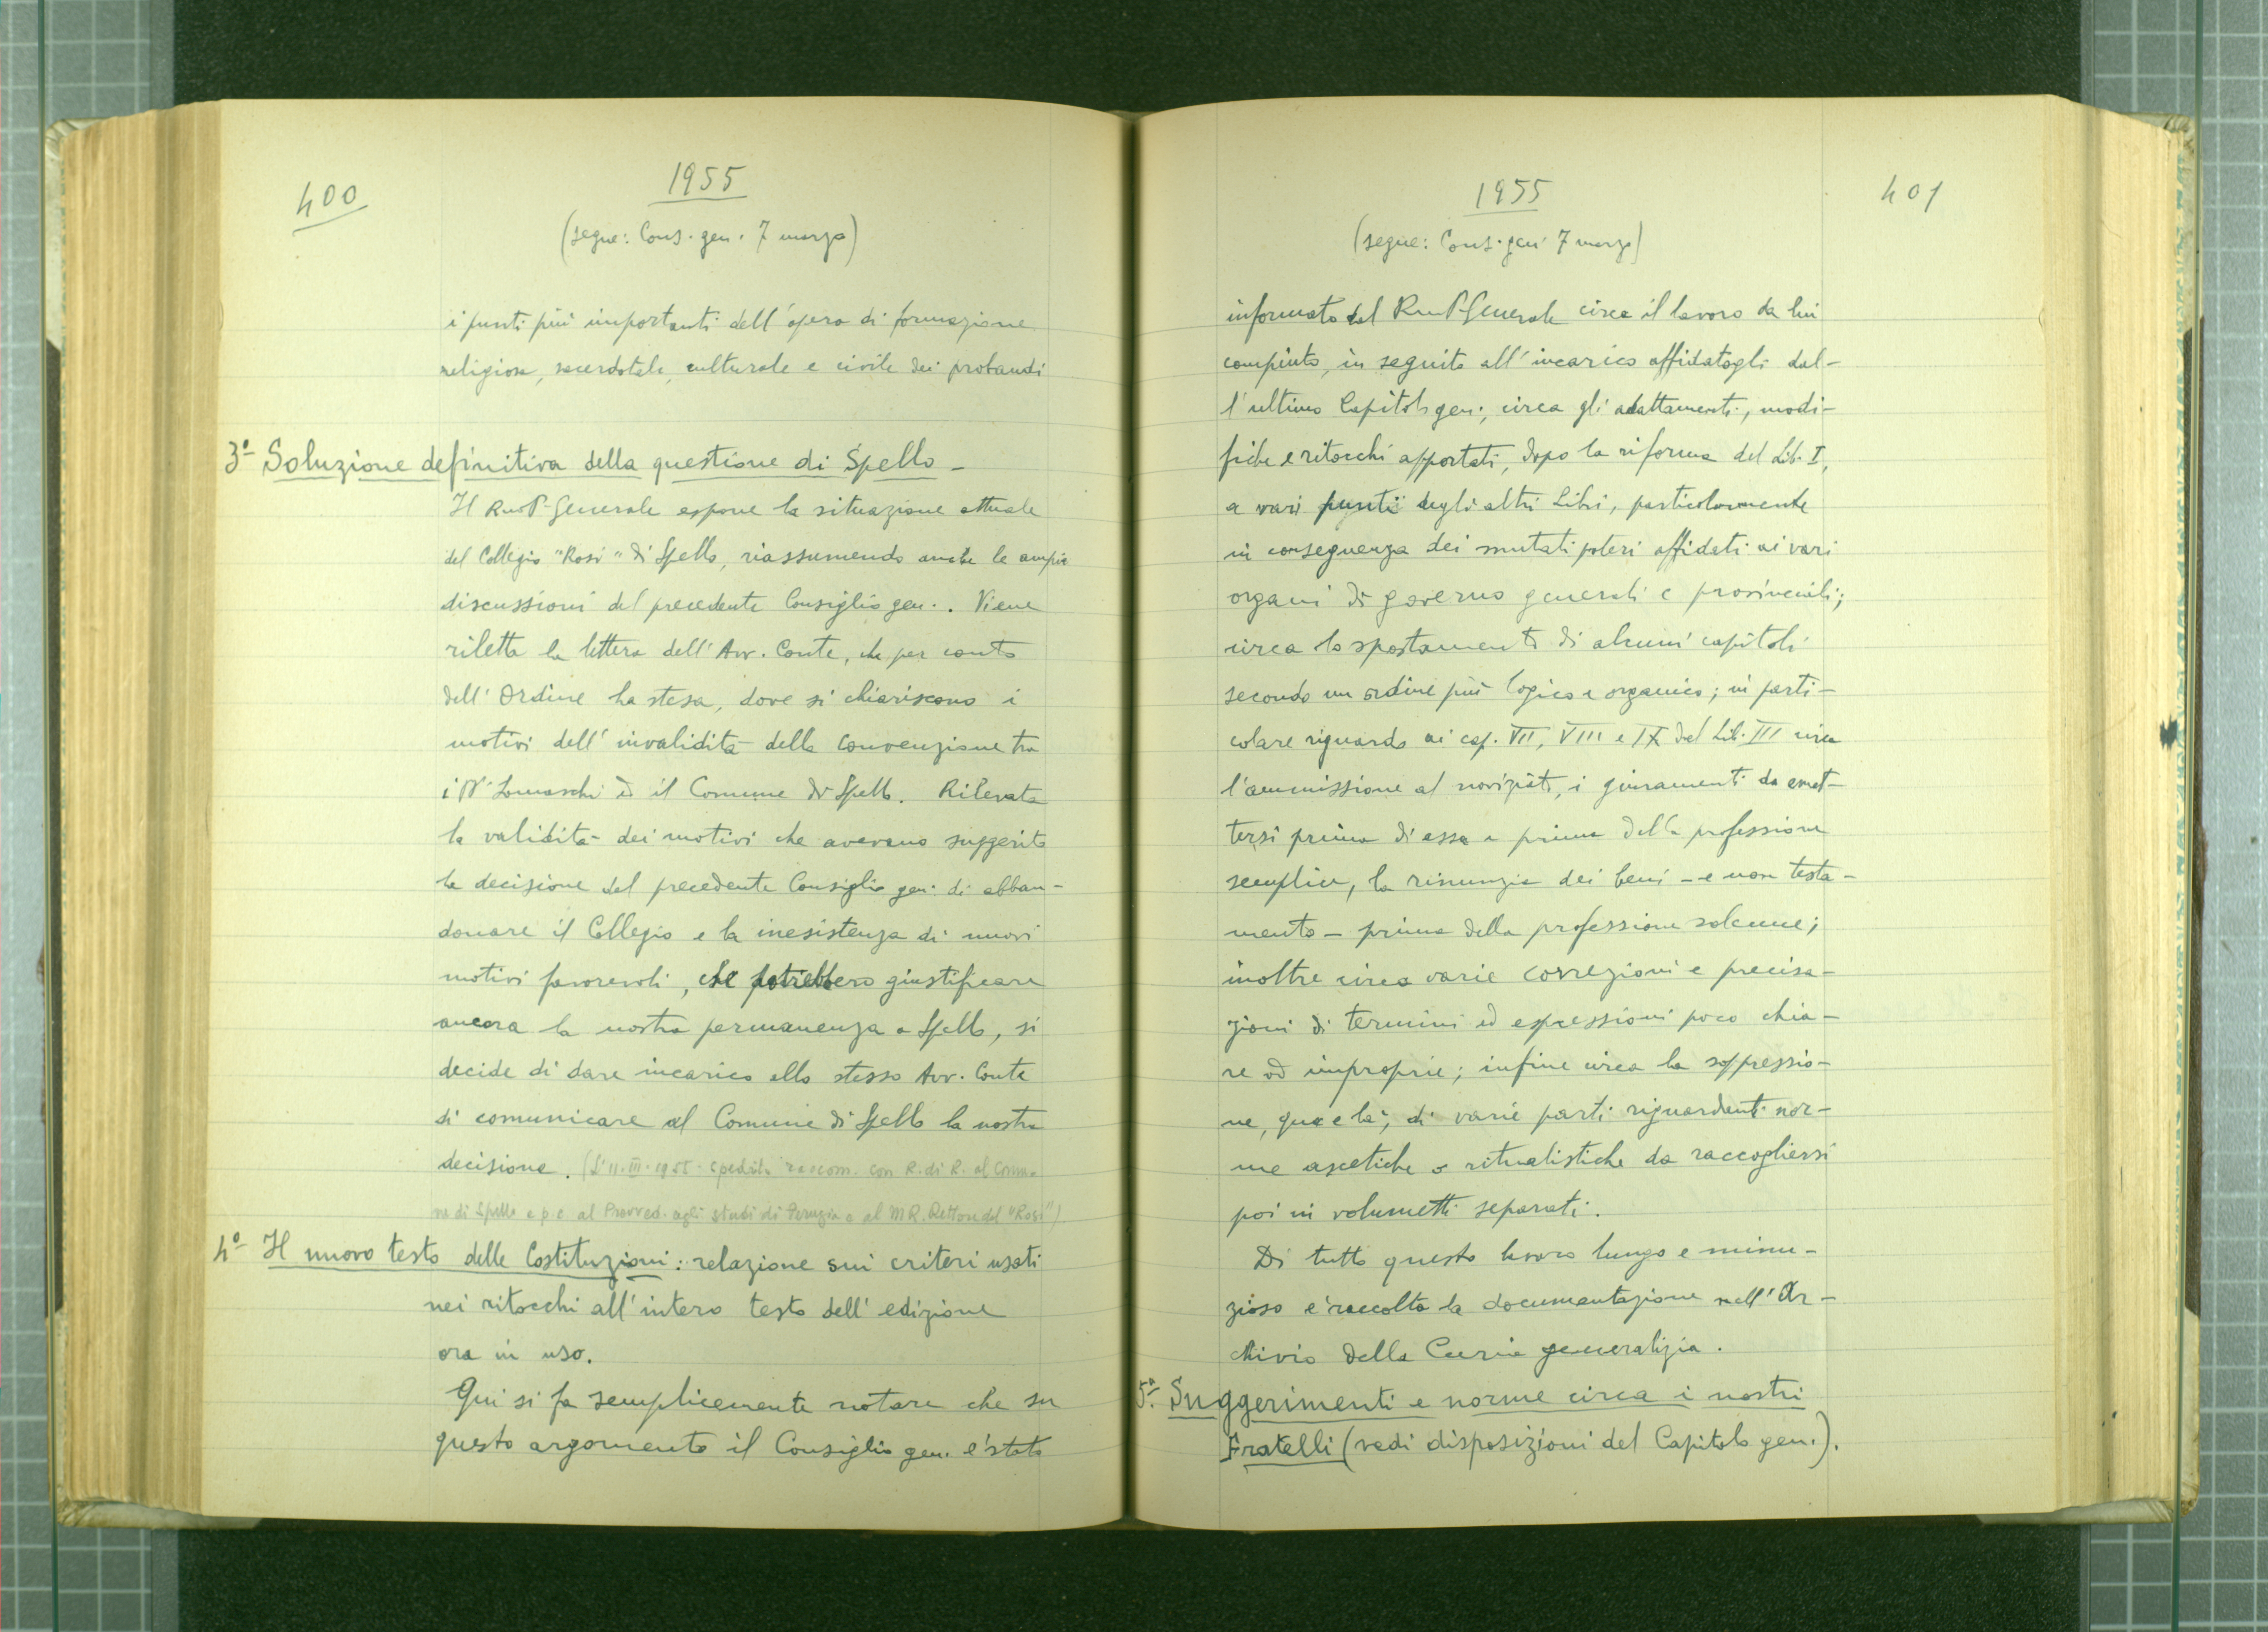 400
1955
(segue: Cons. gen. 7 marzo)
i punti più importanti dell'opera di formazione
religiosa, sacerdotale, culturale e civile dei probandi
3º- Soluzione definitiva della questione di Spello -
Il Rmo P. Generale espone la situazione attuale
del Collegio "Rosi" di Spello, riassumendo anche le ampie
discussioni del precedente Consiglio gen.. Viene
riletta la lettera dell'Avv. Conte, che per conto
dell'Ordine ha stesa, dove si chiariscono i
motivi dell'invalidità della convenzione tra
i PP. Somaschi ed il Comune di Spello. Rilevata
la validità dei motivi che avevano suggerito
la decisione del precedente Consiglio gen. di abban-
donare il Collegio e la inesistenza di nuovi
motivi favorevoli, che potrebbero giustificare
ancora la nostra permanenza a Spello, si
decide di dare incarico allo stesso Avv. Conte
di comunicare al Comune di Spello la nostra
decisione. (L'11-III-1955 spedita raccom. con R. di R. al Comu-
ne di Spello e p.c. al Provved. agli studi di Perugia e al M.R. Rettore del "Rosi")
4º- Il nuovo testo delle Costituzioni: relazione sui criteri usati
nei ritocchi all'intero testo dell'edizione
ora in uso.
Qui si fa semplicemente notare che su
questo argomento il Consiglio gen. è stato
1955
401
(segue: Cons. gen. 7 marzo)
informato dal Rmo P. Generale circa il lavoro da lui
compiuto, in seguito all'incarico affidatogli dal-
l'ultimo Capitolo gen., circa gli adattamenti, modi-
fiche e ritocchi apportati, dopo la riforma del Lib. I,
a vari punti degli altri Libri, particolarmente
in conseguenza dei mutati poteri affidati ai vari
organi di governo generali e provinciali;
circa lo spostamento di alcuni capitoli
secondo un ordine più logico e organico; in parti-
colare riguardo ai cap. VII, VIII e IX del Lib. III circa
l'ammissione al noviziato, i giuramenti da emet-
tersi prima di essa e prima della professione
semplice, la rinunzia dei beni - e non testa-
mento - prima della professione solenne;
inoltre circa varie correzioni e precisa-
zioni di termini ed espressioni poco chia-
re od improprie; infine circa la soppressio-
ne, qua e là, di varie parti riguardanti nor-
me ascetiche o ritualistiche da raccogliersi
poi in volumetti separati.
Di tutto questo lavoro lungo e minu-
zioso è raccolta la documentazione nell'Ar-
chivio della Curia generalizia.
5º- Suggerimenti e norme circa i nostri
Fratelli (vedi disposizioni del Capitolo gen.).